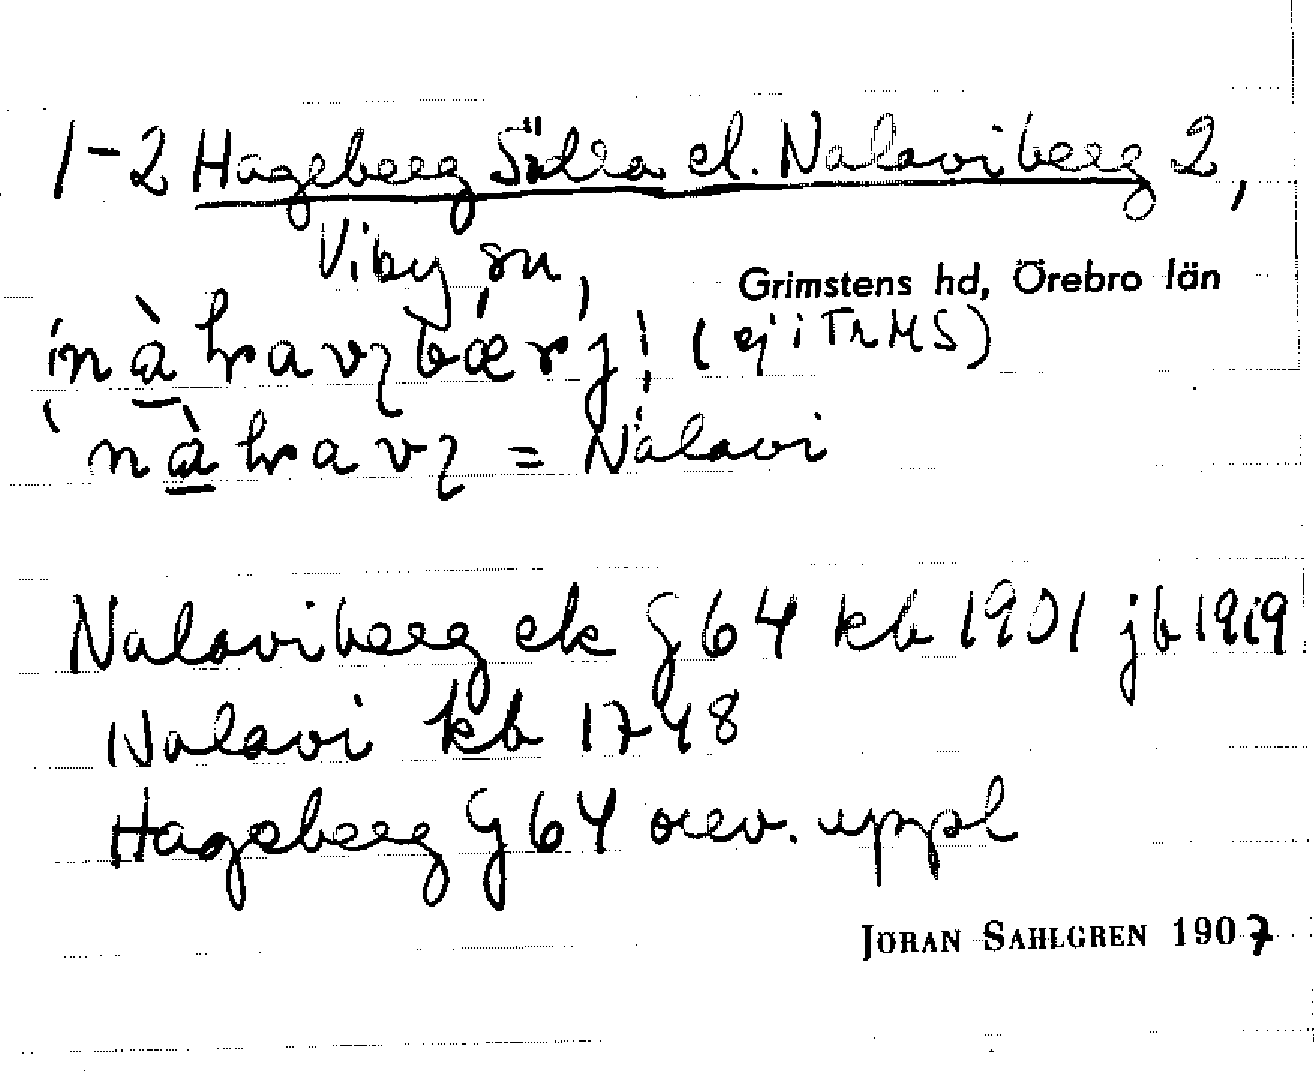 1-2 Hageberg Södra el. Nalaviberg 2,
Viby sn,
Grimstens hd, Örebro län
(ej i TRMS)
= Nalavi
Nalaviberg ek G64 kb 1901 jb 1919
Nalavi kb 1748
Hageberg G64 orev. uppl
JÖRAN SAHLGREN 1907